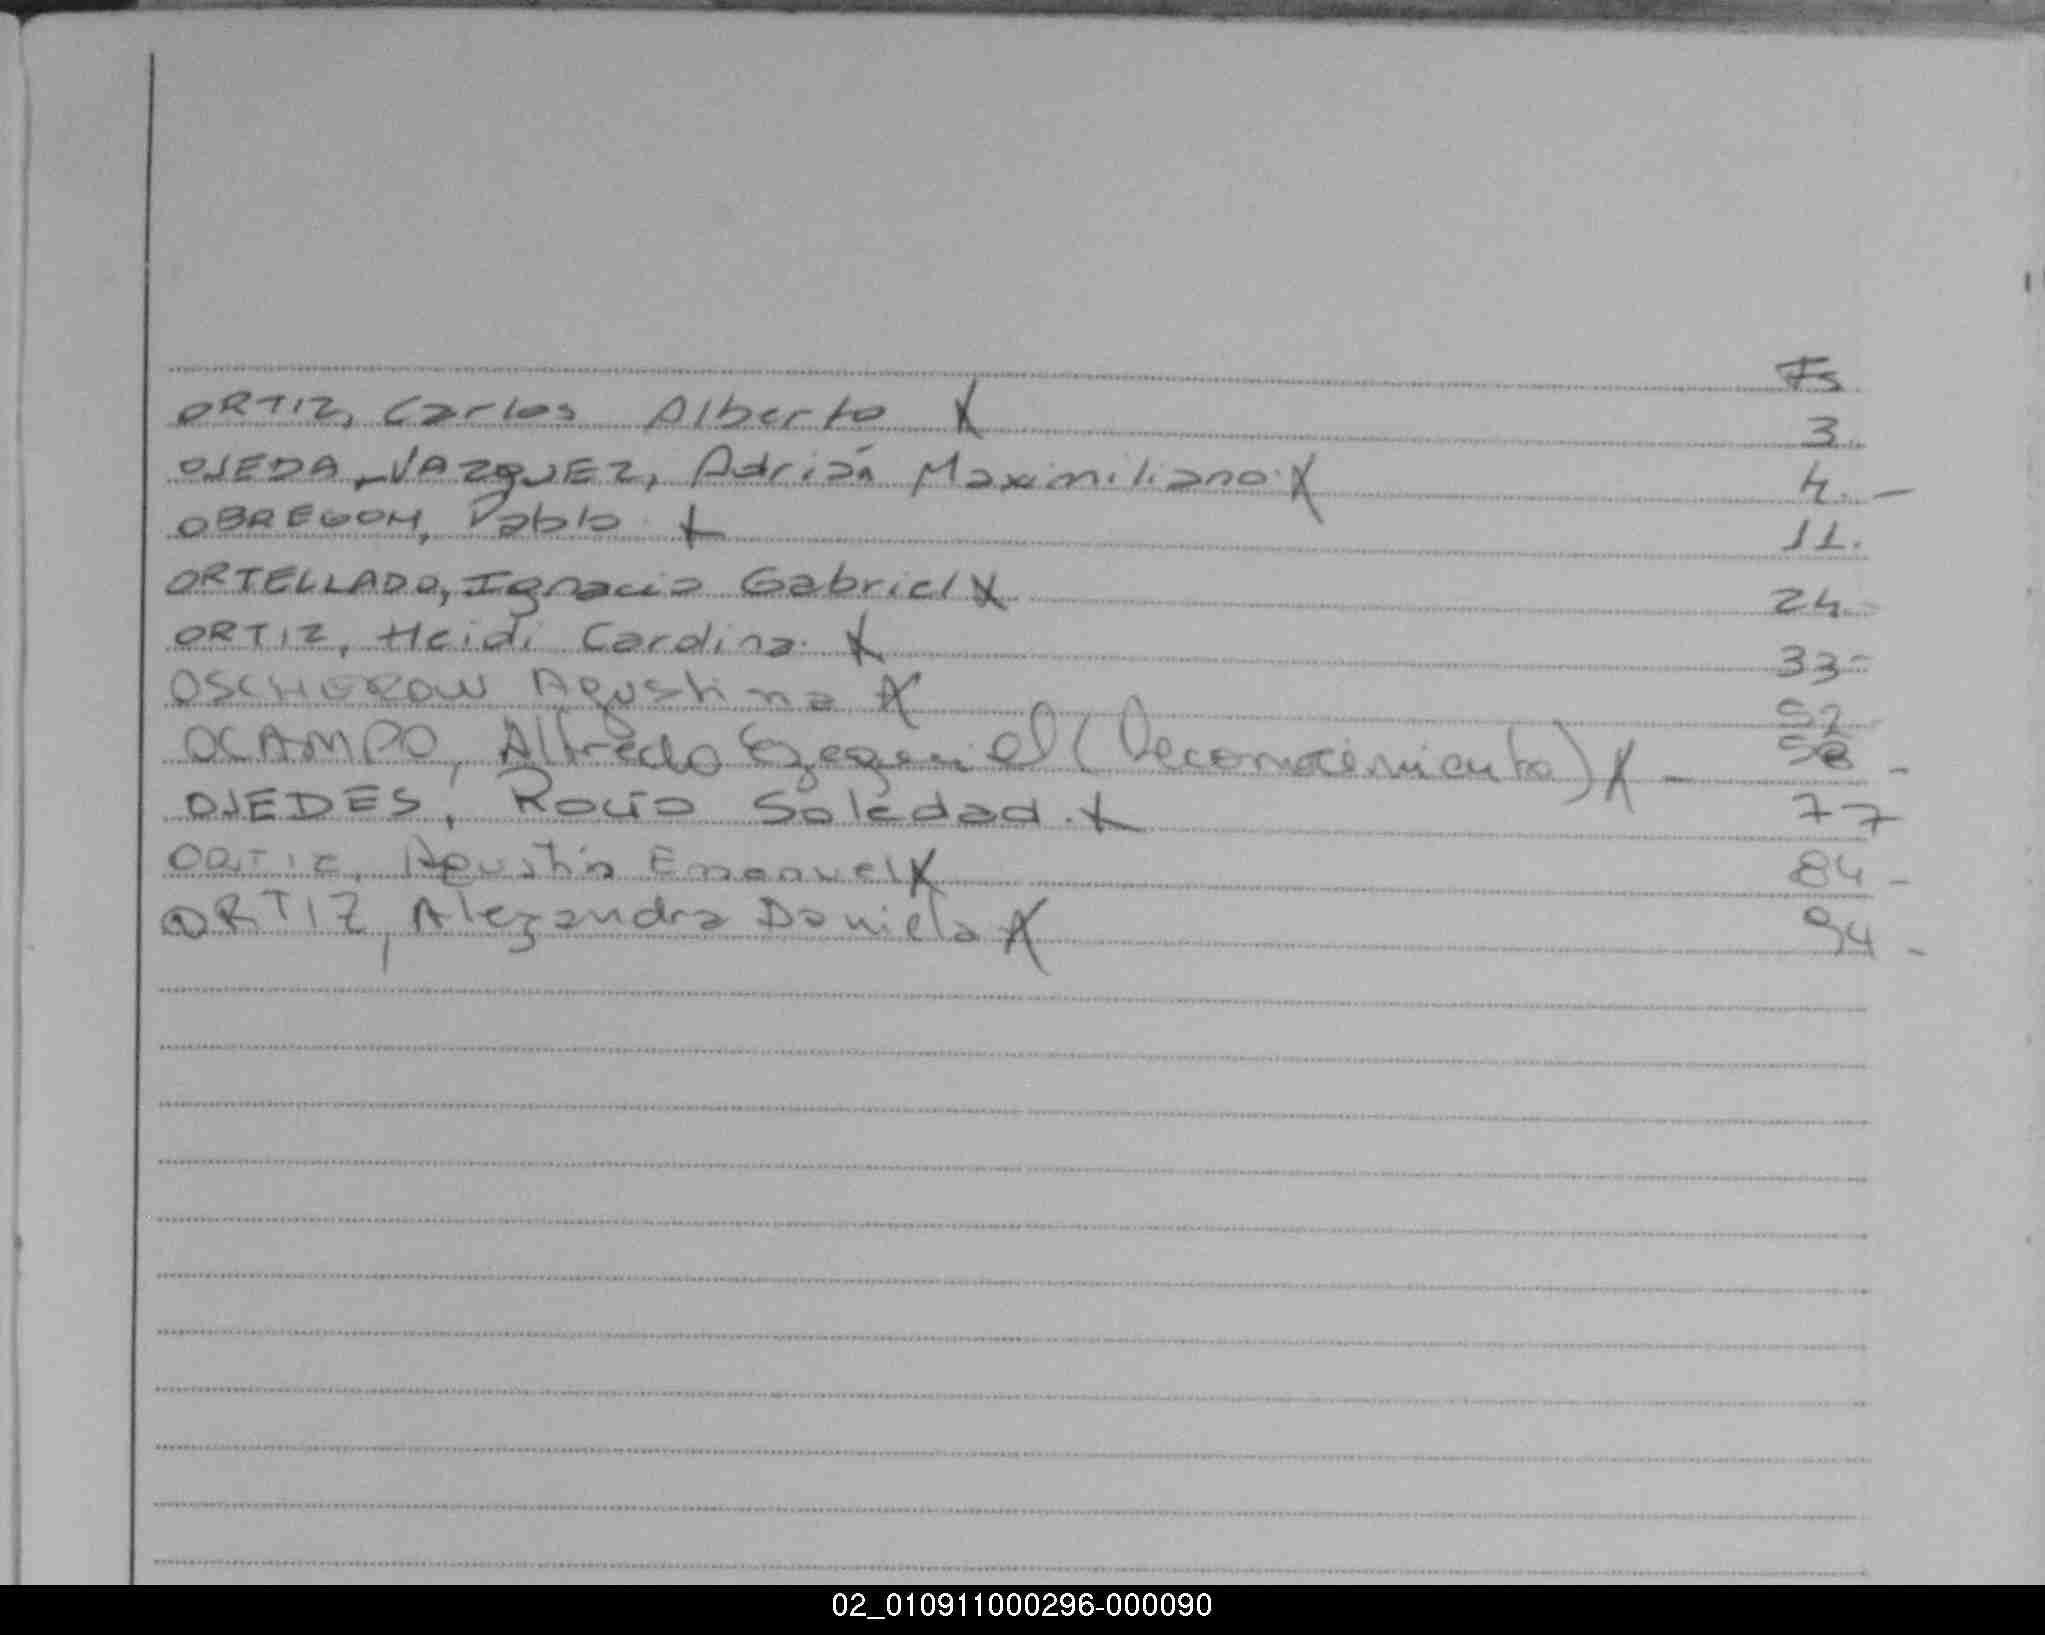 Fs
ORTIZ, Carlos Alberto X 3
OJEDA-VAZQUEZ, Adrián Maximiliano. X 4. -
OBREGON, Pablo. X 11.
ORTELLADO, Ignacio Gabriel X 24.-
ORTIZ, Heidi Cardina. X 33-
Agustina X 52-
OCAMPO, Alfredo Ezequiel (Reconocimiento) X - 58 -
OJEDES, Rocío Soledad. X 77
ORTIZ, Agustín Emanuel X 84 -
ORTIZ, Alezandra Daniela X 94 -
02_010911000296-000090